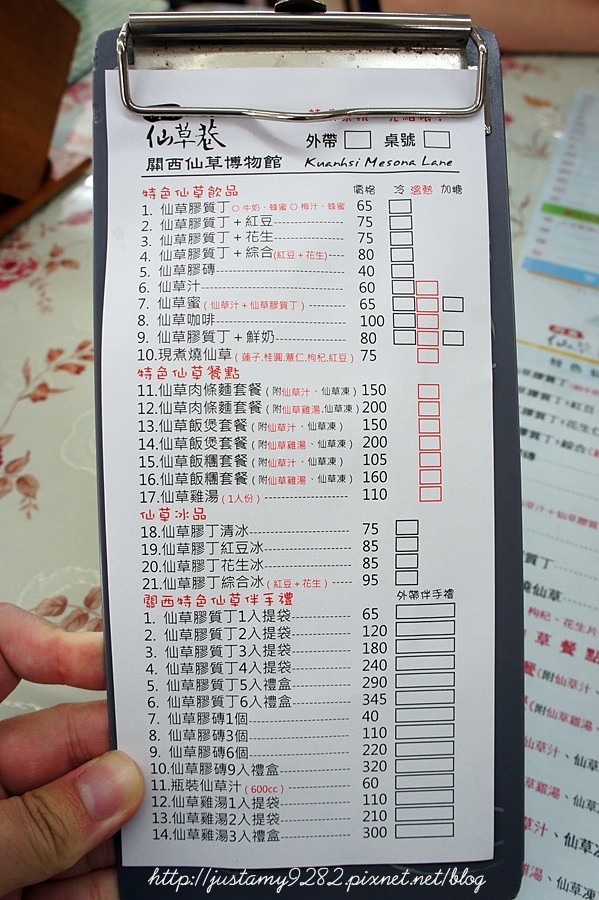 仙草巷 外帶 桌號
關西仙草博物館 Kuanhsi Mesona Lane
特色仙草飲品 價格 冷 溫熱 加糖
1. 仙草膠質丁 ○牛奶、蜂蜜 ○梅汁、蜂蜜 65
2. 仙草膠質丁+紅豆 75
3. 仙草膠質丁+花生 75
4. 仙草膠質丁+綜合(紅豆+花生) 80
5. 仙草膠磚 40
6. 仙草汁 60
7. 仙草蜜(仙草汁+仙草膠質丁) 65
8. 仙草咖啡 100
9. 仙草膠質丁+鮮奶 80
10.現煮燒仙草(蓮子.桂圓.薏仁.枸杞.紅豆) 75
特色仙草餐點
11.仙草肉條麵套餐(附仙草汁、仙草凍) 150
12.仙草肉條麵套餐(附仙草雞湯.仙草凍) 200
13.仙草飯煲套餐(附仙草汁、仙草凍) 150
14.仙草飯煲套餐(附仙草雞湯、仙草凍) 200
15.仙草飯糰套餐(附仙草汁、仙草凍) 105
16.仙草飯糰套餐(附仙草雞湯、仙草凍) 160
17.仙草雞湯(1人份) 110
仙草冰品
18.仙草膠丁清冰 75
19.仙草膠丁紅豆冰 85
20.仙草膠丁花生冰 85
21.仙草膠丁綜合冰(紅豆+花生) 95
關西特色仙草伴手禮 外帶伴手禮
1. 仙草膠質丁1入提袋 65
2. 仙草膠質丁2入提袋 120
3. 仙草膠質丁3入提袋 180
4. 仙草膠質丁4入提袋 240
5. 仙草膠質丁5入禮盒 290
6. 仙草膠質丁6入禮盒 345
7. 仙草膠磚1個 40
8. 仙草膠磚3個 110
9. 仙草膠磚6個 220
10.仙草膠磚9入禮盒 320
11.瓶裝仙草汁(600cc) 60
12.仙草雞湯1入提袋 110
13.仙草雞湯2入提袋 210
14.仙草雞湯3入禮盒 300
http://justamy9282.pixnet.net/blog